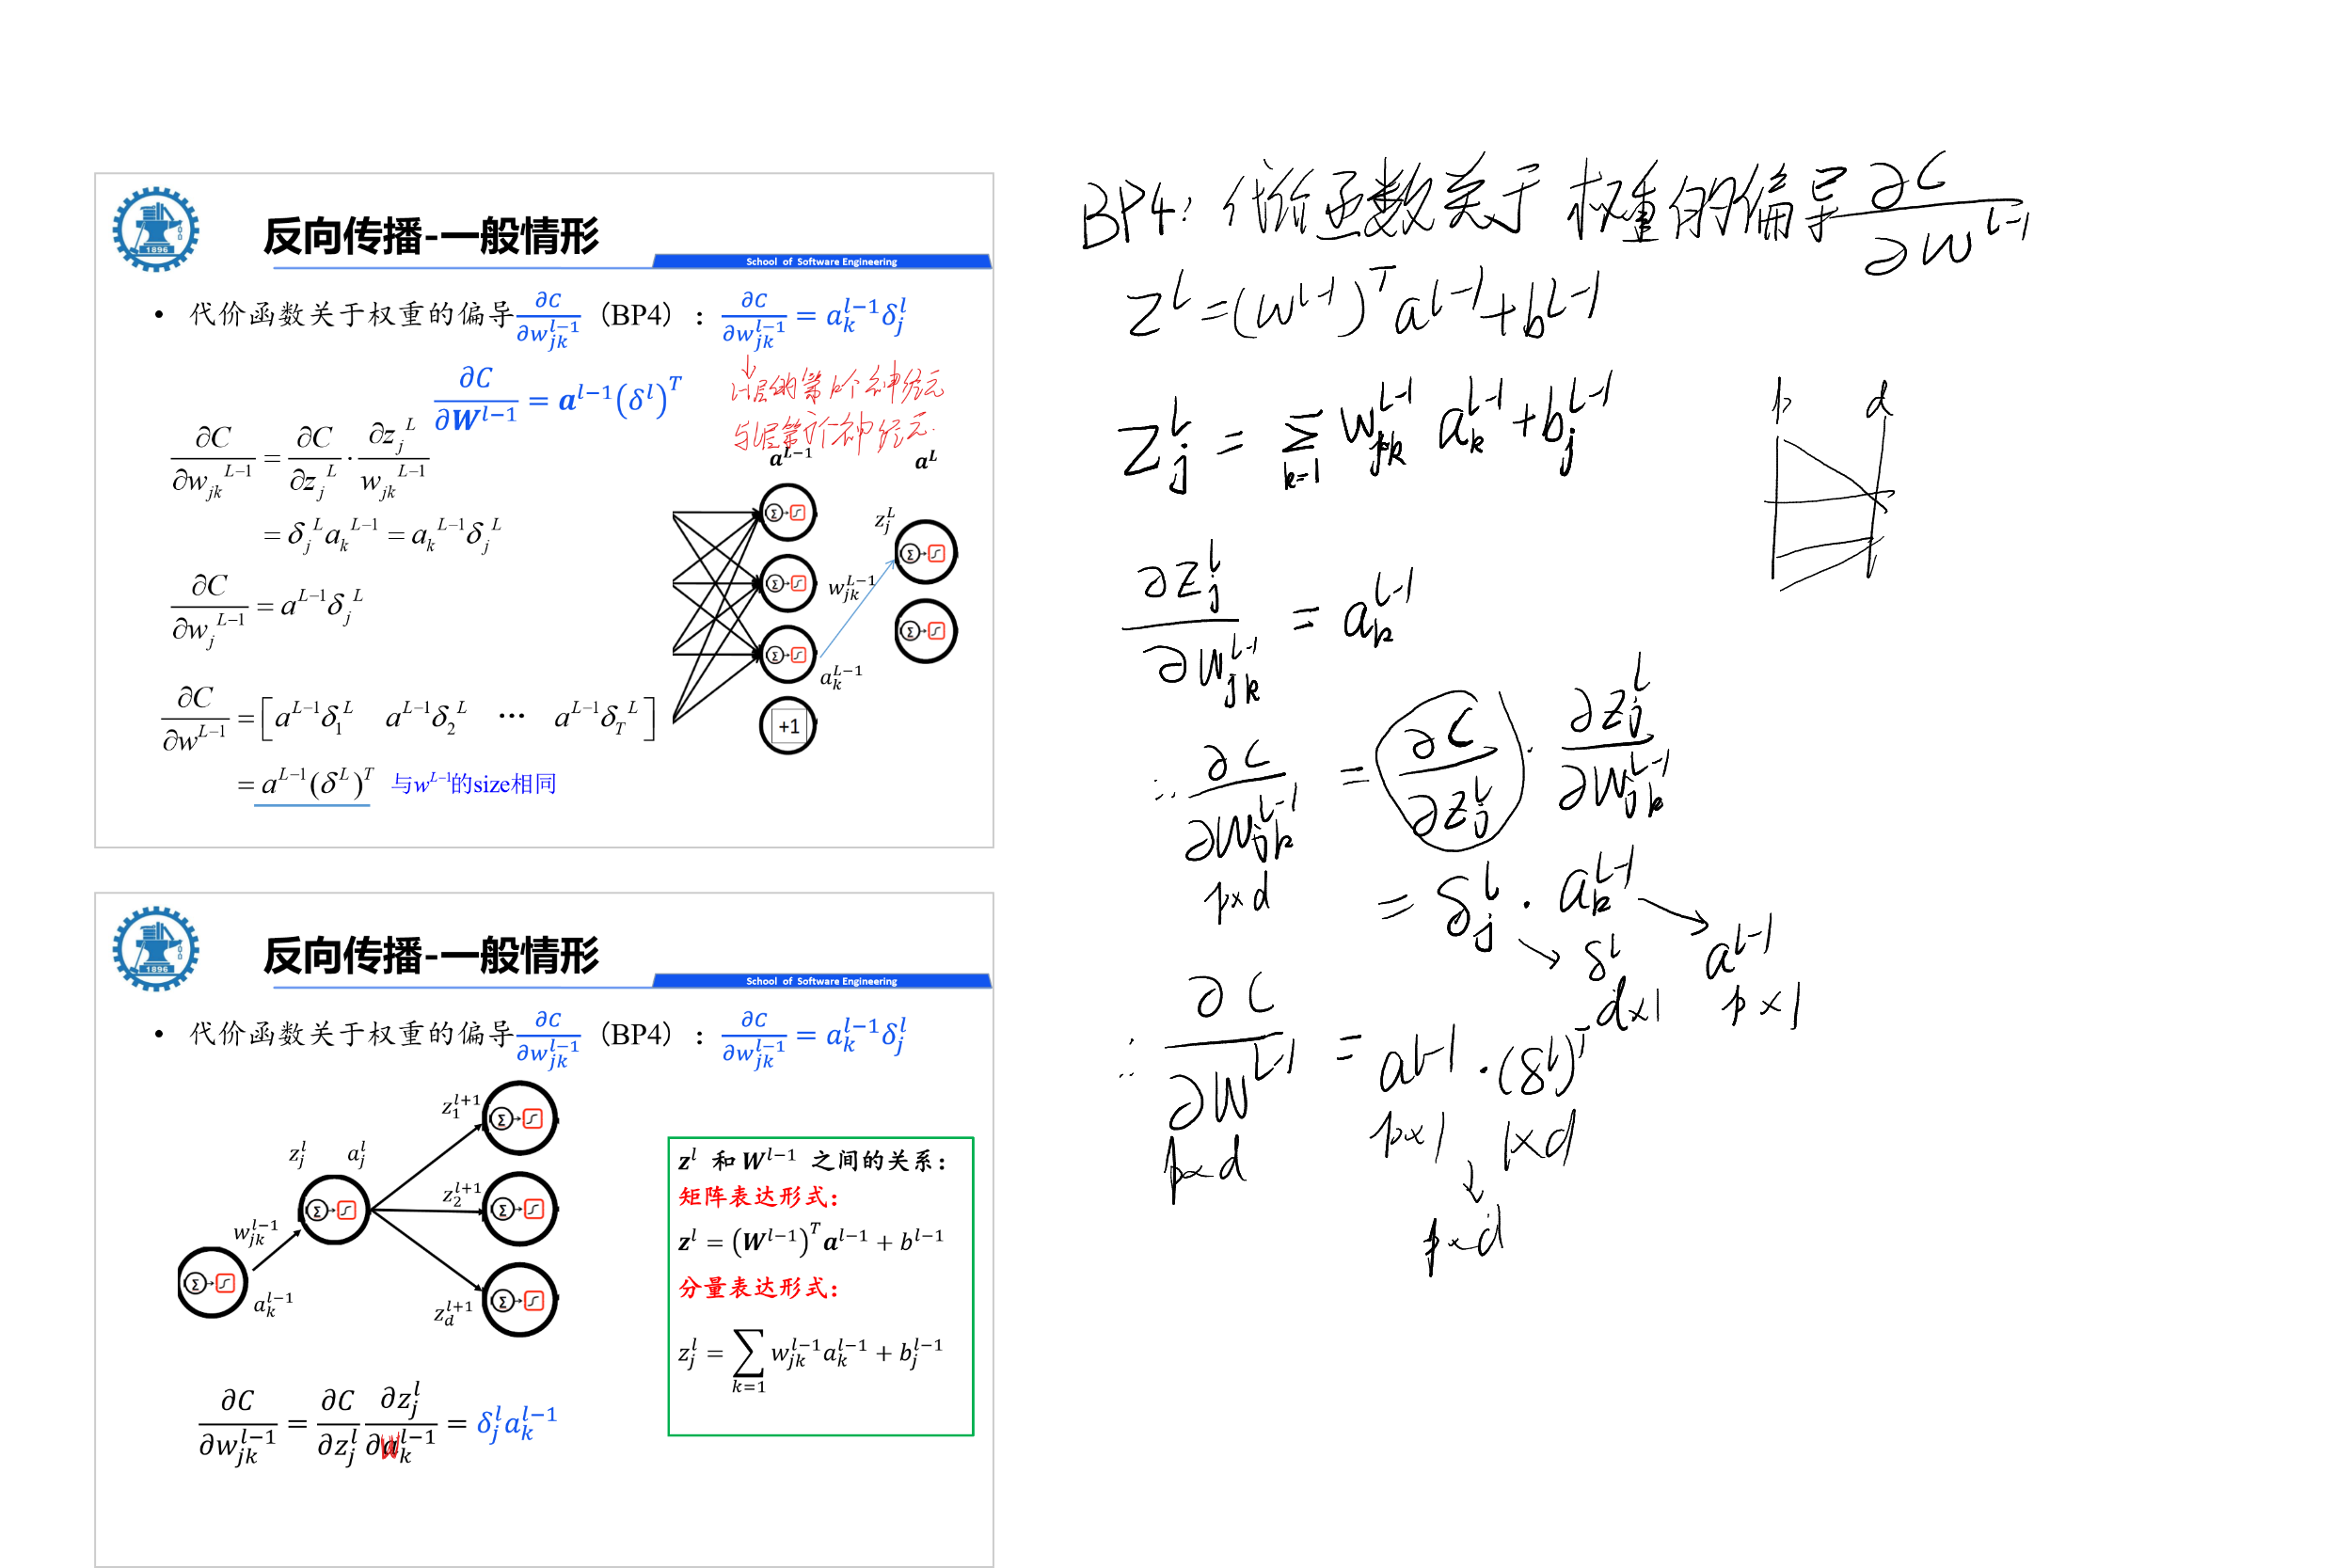 反向传播-一般情形
School of Software Engineering
1896
• 代价函数关于权重的偏导 ∂C/∂w_{jk}^{l−1} (BP4) : ∂C/∂w_{jk}^{l−1} = a_k^{l−1} δ_j^l
∂C/∂W^{l−1} = a^{l−1}(δ^l)^T
↓
l-1层的第k个神经元
与l层第j个神经元.
∂C/∂w_{jk}^{L−1} = ∂C/∂z_j^L · ∂z_j^L/w_{jk}^{L−1}
= δ_j^L a_k^{L−1} = a_k^{L−1} δ_j^L
∂C/∂w_j^{L−1} = a^{L−1} δ_j^L
∂C/∂w^{L−1} = [a^{L−1}δ_1^L a^{L−1}δ_2^L ⋯ a^{L−1}δ_T^L]
= a^{L−1}(δ^L)^T 与w^{L−1}的size相同
a^{L−1} a^L
z_j^L
w_{jk}^{L−1}
a_k^{L−1}
Σ
Σ
Σ
Σ
Σ
+1
反向传播-一般情形
School of Software Engineering
1896
• 代价函数关于权重的偏导 ∂C/∂w_{jk}^{l−1} (BP4) : ∂C/∂w_{jk}^{l−1} = a_k^{l−1} δ_j^l
z_1^{l+1}
z_j^l a_j^l
z_2^{l+1}
w_{jk}^{l−1}
a_k^{l−1}
z_d^{l+1}
Σ
Σ
Σ
Σ
Σ
z^l 和 W^{l−1} 之间的关系：
矩阵表达形式：
z^l = (W^{l−1})^T a^{l−1} + b^{l−1}
分量表达形式：
z_j^l = ∑_{k=1} w_{jk}^{l−1} a_k^{l−1} + b_j^{l−1}
∂C/∂w_{jk}^{l−1} = ∂C/∂z_j^l ∂z_j^l/∂w_k^{l−1} = δ_j^l a_k^{l−1}
BP4: 代价函数关于权重的偏导 ∂C/∂W^{l-1}
z^l = (W^{l-1})^T a^{l-1} + b^{l-1}
z_j^l = Σ_{k=1} w_{jk}^{l-1} a_k^{l-1} + b_j^{l-1}
p d
∂z_j^l/∂w_{jk}^{l-1} = a_k^{l-1}
∴ ∂C/∂w_{jk}^{l-1} = ∂C/∂z_j^l · ∂z_j^l/∂w_{jk}^{l-1}
p×d
= δ_j^l · a_k^{l-1}
→ δ^l → a^{l-1}
d×1 p×1
∴ ∂C/∂W^{l-1} = a^{l-1} · (δ^l)^T
p×d p×1 1×d
↓
p×d